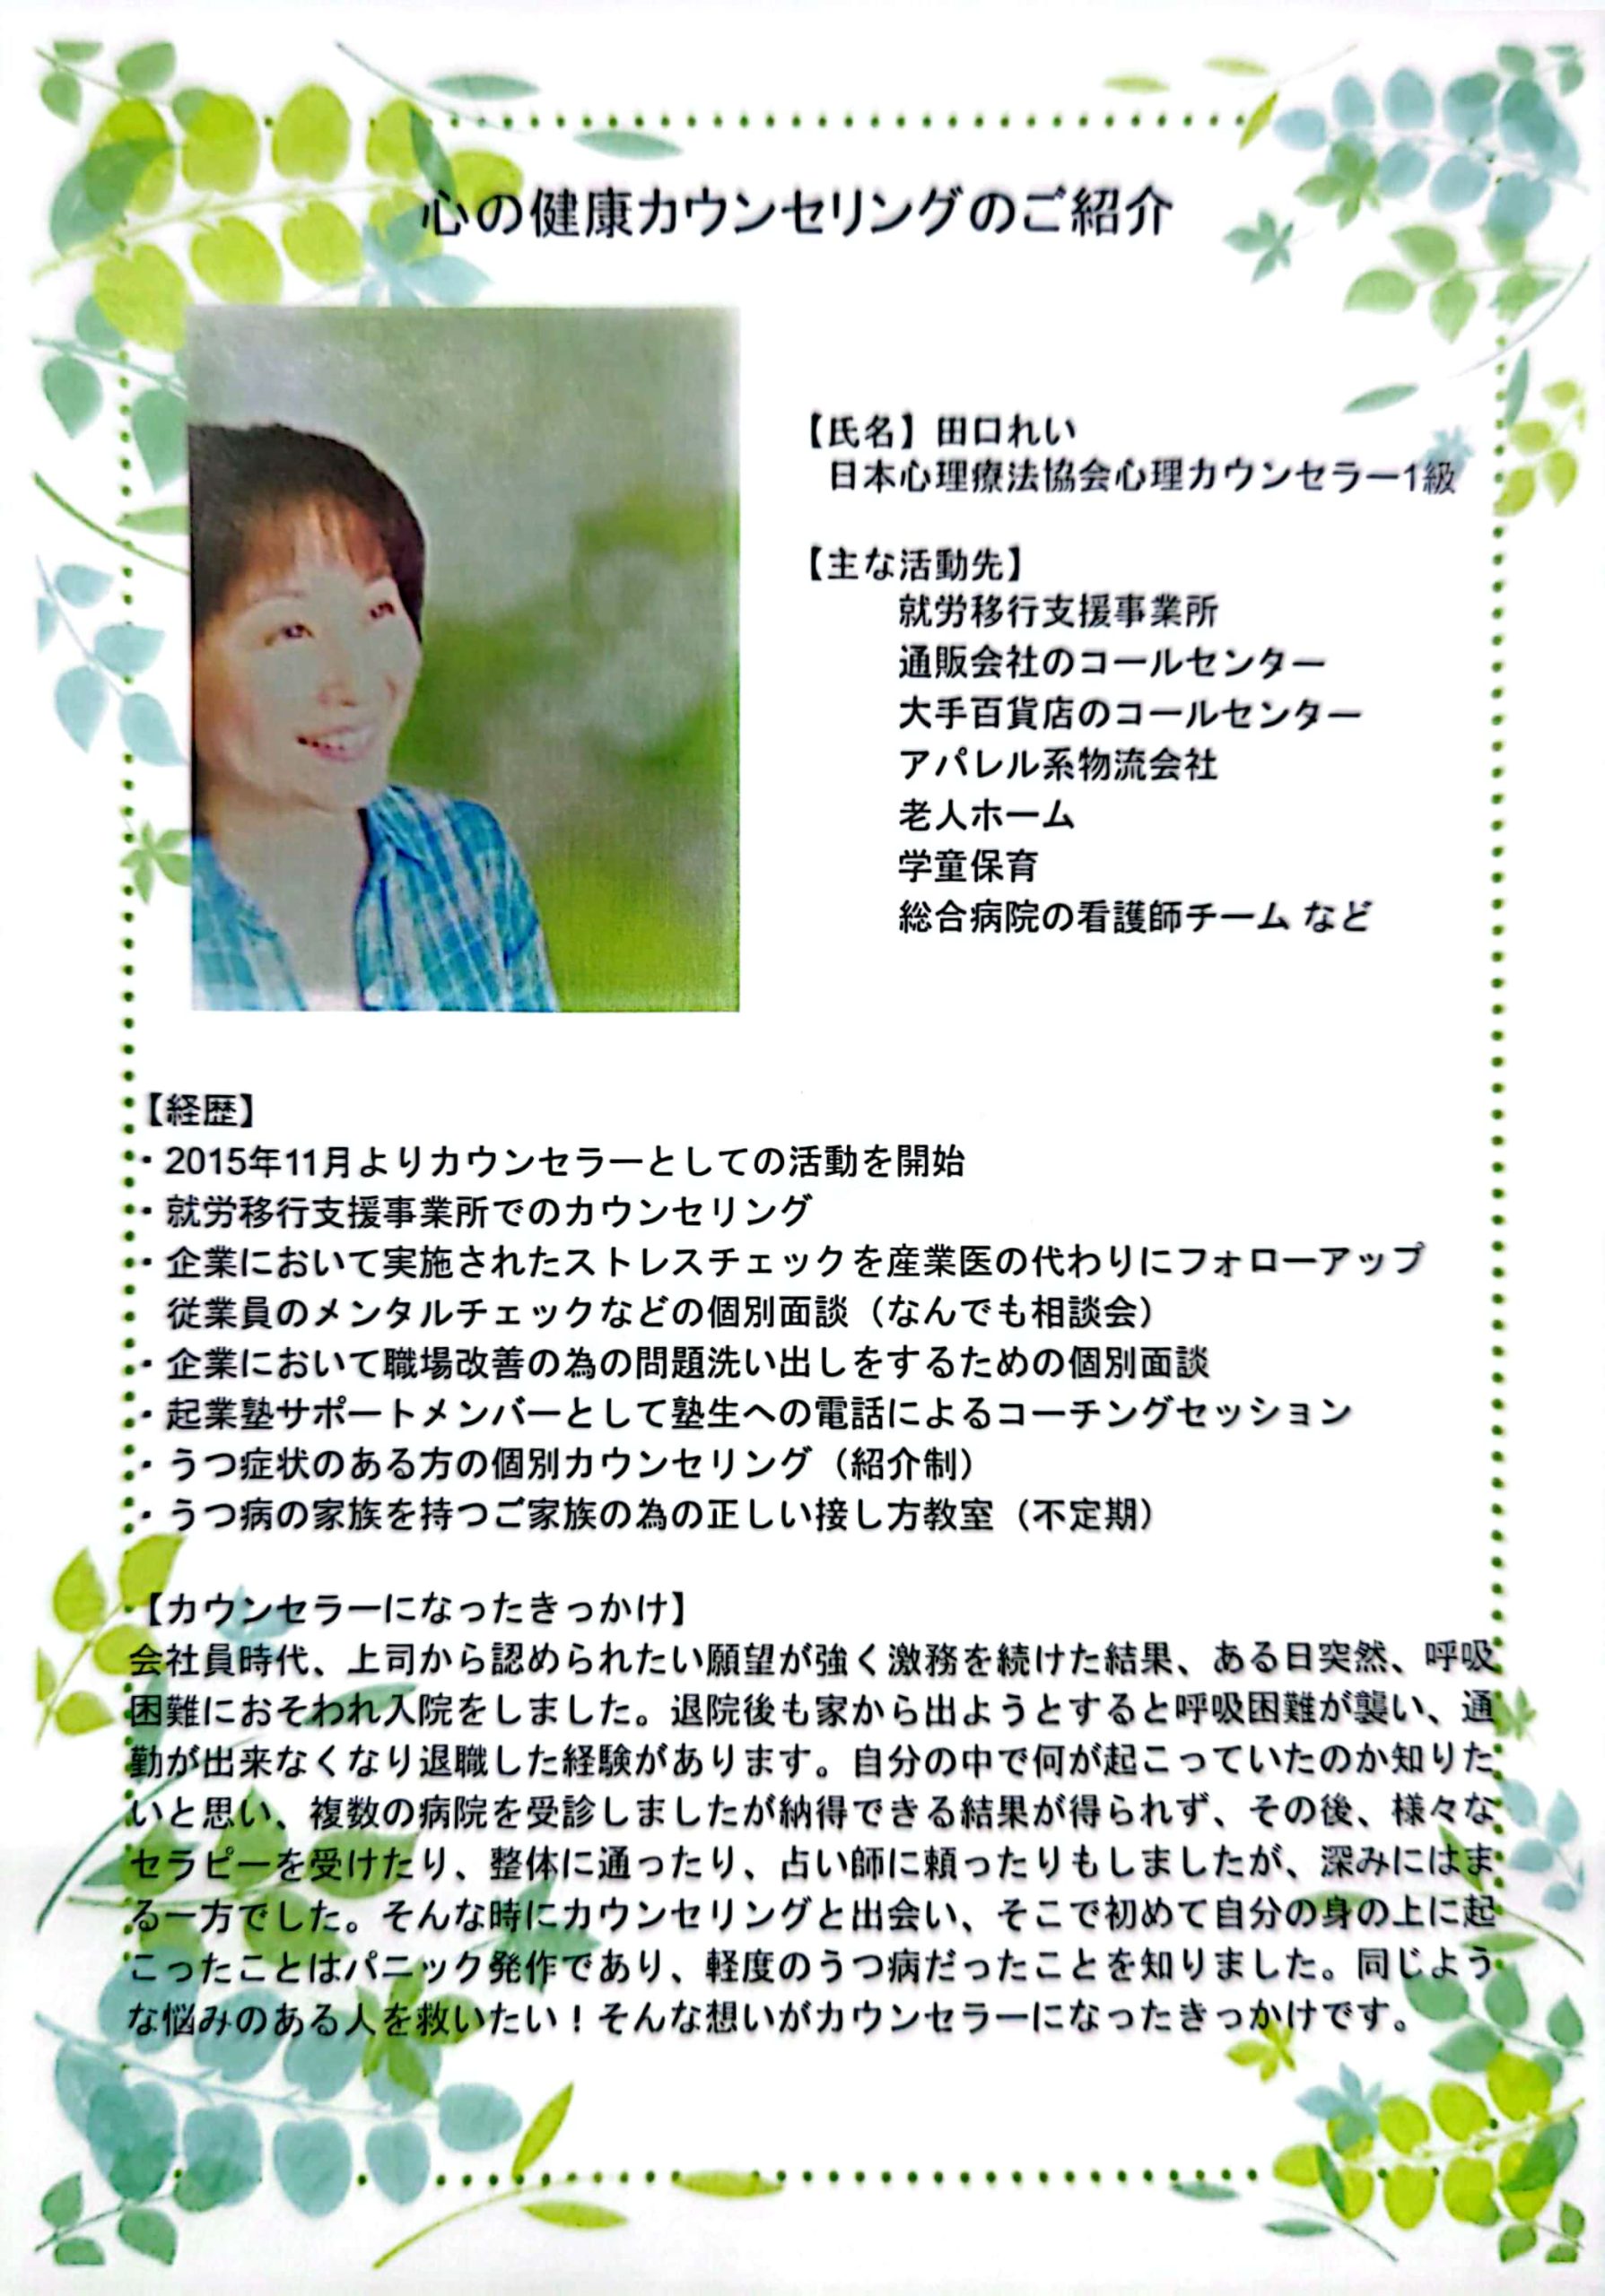 心の健康カウンセリングのご紹介
【氏名】田口れい
日本心理療法協会心理カウンセラー1級
【主な活動先】
就労移行支援事業所
通販会社のコールセンター
大手百貨店のコールセンター
アパレル系物流会社
老人ホーム
学童保育
総合病院の看護師チーム など
【経歴】
・2015年11月よりカウンセラーとしての活動を開始
・就労移行支援事業所でのカウンセリング
・企業において実施されたストレスチェックを産業医の代わりにフォローアップ
従業員のメンタルチェックなどの個別面談（なんでも相談会）
・企業において職場改善の為の問題洗い出しをするための個別面談
・起業塾サポートメンバーとして塾生への電話によるコーチングセッション
・うつ症状のある方の個別カウンセリング（紹介制）
・うつ病の家族を持つご家族の為の正しい接し方教室（不定期）
【カウンセラーになったきっかけ】
会社員時代、上司から認められたい願望が強く激務を続けた結果、ある日突然、呼吸
困難におそわれ入院をしました。退院後も家から出ようとすると呼吸困難が襲い、通
勤が出来なくなり退職した経験があります。自分の中で何が起こっていたのか知りた
いと思い、複数の病院を受診しましたが納得できる結果が得られず、その後、様々な
セラピーを受けたり、整体に通ったり、占い師に頼ったりもしましたが、深みにはま
る一方でした。そんな時にカウンセリングと出会い、そこで初めて自分の身の上に起
こったことはパニック発作であり、軽度のうつ病だったことを知りました。同じよう
な悩みのある人を救いたい！そんな想いがカウンセラーになったきっかけです。